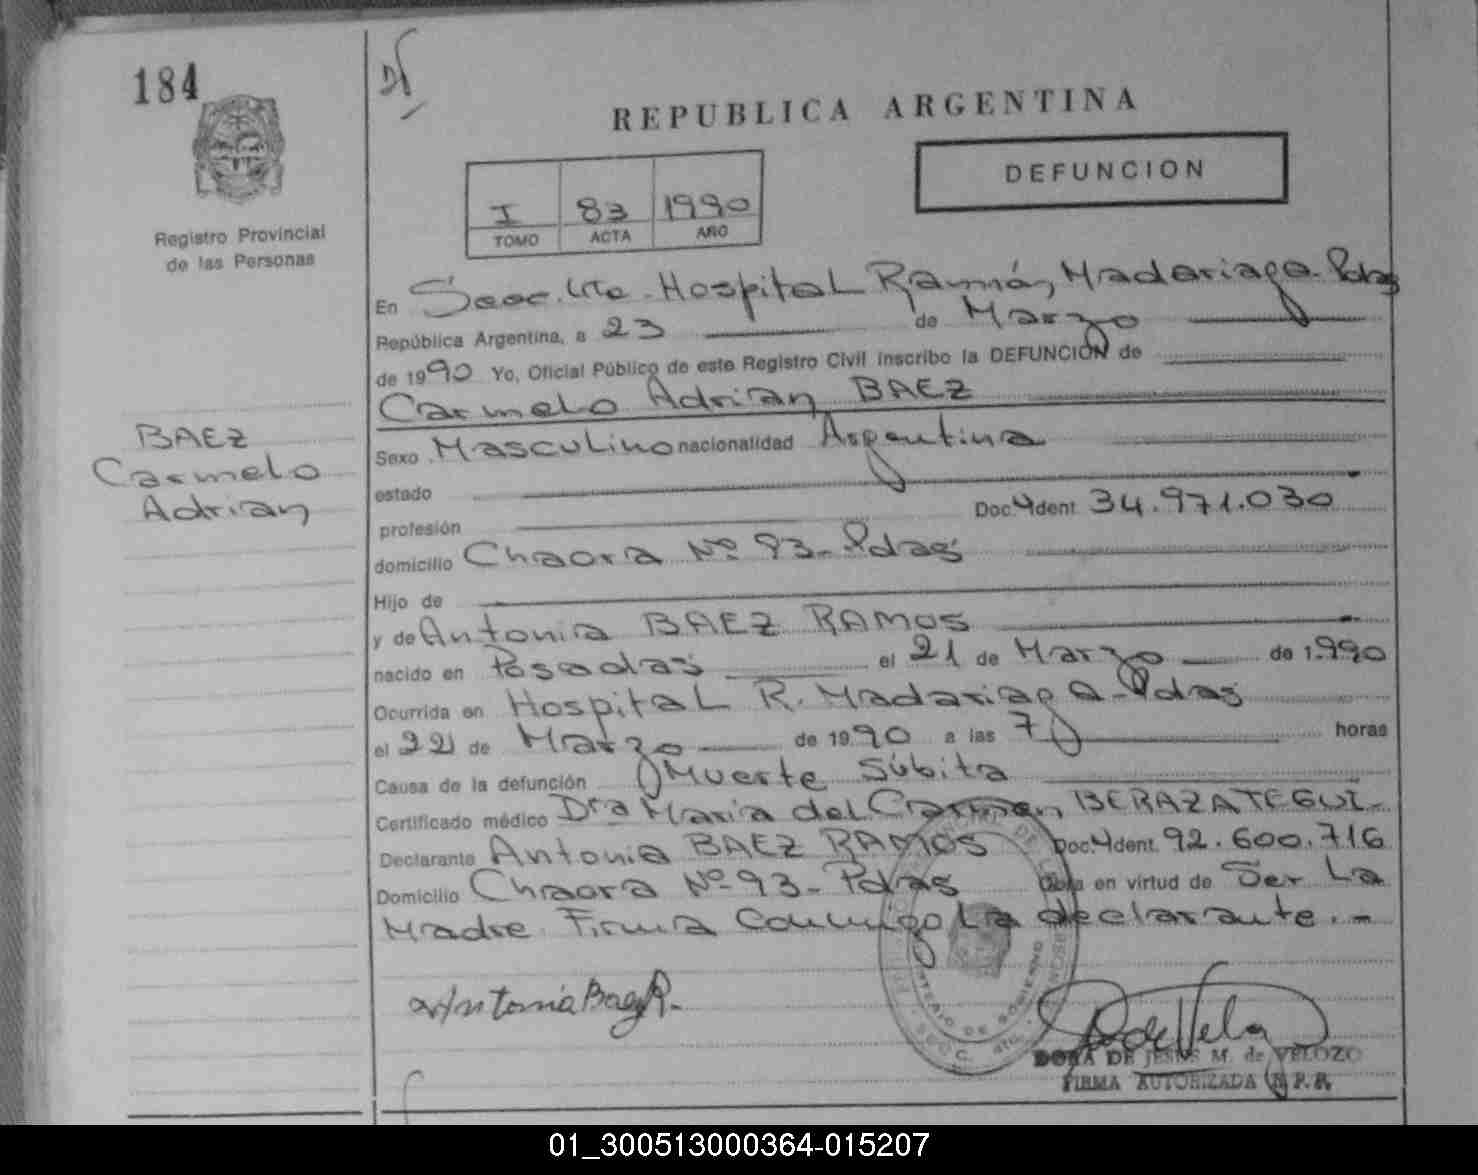 184
REPUBLICA ARGENTINA
DEFUNCION
I 83 1990
TOMO ACTA AÑO
Registro Provincial
de las Personas
BAEZ
Carmelo
Adrian
En Secc. 4ta. Hospital Ramón Madariaga-Pdas
República Argentina, a 23 de Marzo
de 1990 Yo, Oficial Público de este Registro Civil inscribo la DEFUNCION de
Carmelo Adrian BAEZ
Sexo Masculino nacionalidad Argentina
estado
profesión Doc. Ydent 34.971.030
domicilio Chacra Nº 93-Pdas
Hijo de
y de Antonia BAEZ RAMOS
nacido en Posadas el 21 de Marzo de 1.990
Ocurrida en Hospital R. Madariaga-Pdas
el 22 de Marzo de 1990 a las 7 horas
Causa de la defunción Muerte Súbita
Certificado médico Dra María del Carmen BERAZATEGUI-
Declarante Antonia BAEZ RAMOS Doc. Ydent. 92.600.716
Domicilio Chacra Nº 93-Pdas Obra en virtud de Ser La
Madre. Firma Conmigo La declarante.-
Antonia Baez R.
MINISTERIO DE GOBIERNO
SECC. 4ta.
DORA DE JESUS M. de VELOZO
FIRMA AUTORIZADA R.P.P.
01_300513000364-015207